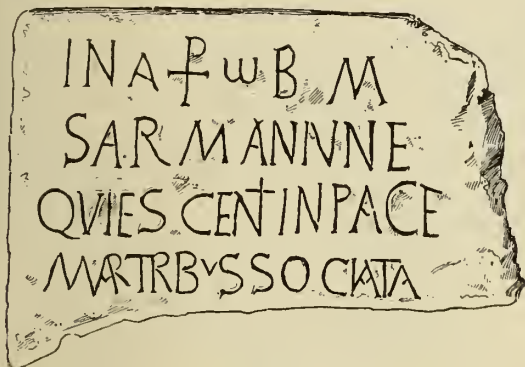 IN A ⳨ ω B M
SARMANNVNE
QVIESCEN†INPACE
MARTRBVSSOCIATA